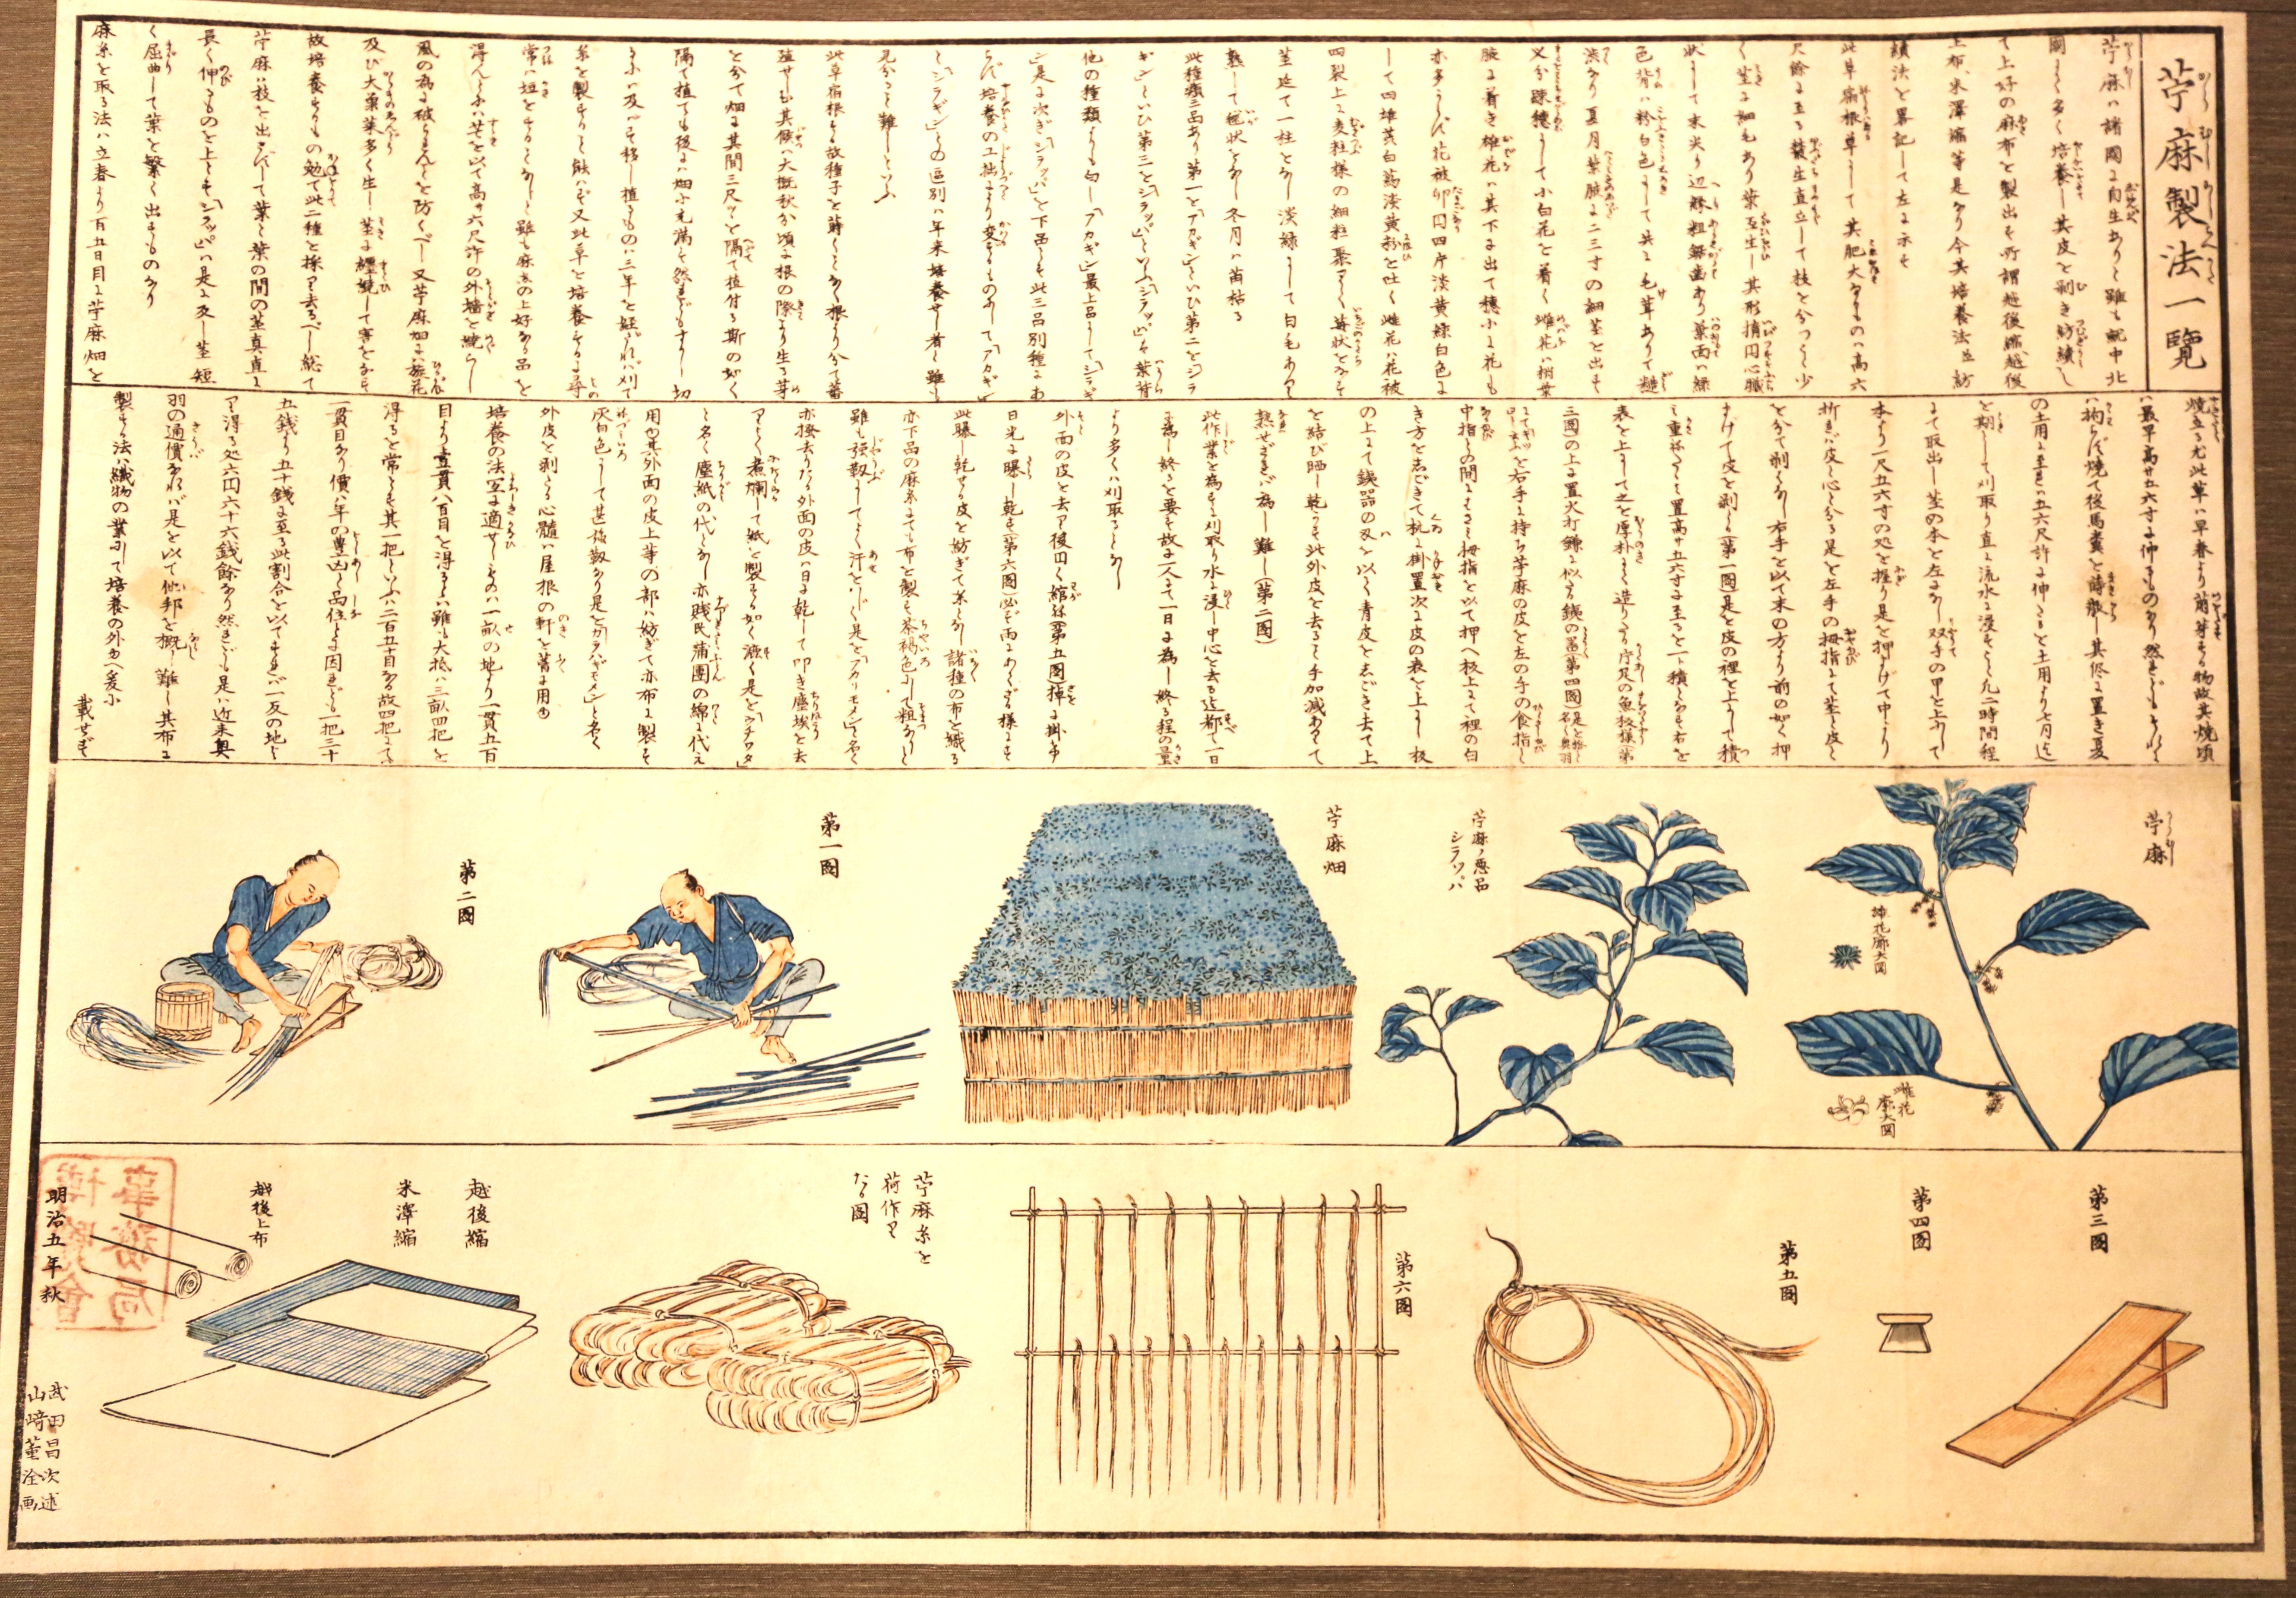 苧麻製法一覧
苧麻ハ諸國に自生あり と雖も 就中北
國 多く培養し其皮を剥き紡績し
て上好の麻布を製出す所謂越後縮越後
上布、米澤縮等是なり今其培養法並紡
績法を畧記して左に示す
此草宿根草にして其肥大なるものハ高六
尺餘に至る叢生直立して枝を分つこと少
く茎に細毛あり葉互生し其形楕円心臓
状にして末尖り辺縁粗鋸歯あり葉面ハ緑
色背ハ粉白色にして共に毛茸ありて糙
渋なり夏月葉腋に二三寸の細茎を出す
又分 穂にして小白花を着く雌花ハ梢葉
腋に着き雄花ハ其下に出て穂小に花も
亦多からず花被卵円四片淡黄緑白色に
して四雄 黄白萬淡黄粉を吐く雌花ハ花被
四裂上に麦粒様の細粒聚りて苺状をなす
茎迄て一柱をなし淡緑にして白毛ありて
熟して 状をなし冬月ハ苗枯る
此種類三品あり第一を「アカギ」といひ第二を「シラ
ギ」といひ第三を「シラッパ」といふ「シラッパ」は葉背
他の種類よりも白し「アカギ」最上品にして「シラギ」
是に次ぎ「シラッパ」を下品とす此三品別種にあ
らず培養の工拙より変ずるものにして「アカギ」
と「シラギ」との區別ハ年来培養せし者と雖も
見分ること難しといふ
此草宿根する故種子を蒔くことなく根より分て蕃
殖せしむ其候ハ大概秋分頃に根の際より生る芽
を分て畑に其間三尺つゝを隔て植付る斯の如く
隔て植ても後にハ畑に充満す然れどもすべて切
るに及べす移し植るものハ二年を経ざれバ刈て
糸を製すること能ハず又此草を培養するに尋
常ハ 垣をすることなしと雖も麻糸の上好なる品を
得んにハ芒を以て高サ六尺許の外墻を繞らし
風の為に破られんことを防ぐべし又苧麻畑にハ旋花
及び大葉 葉多く生し茎に纏繞して害をなす
故培養するもの勉て此二種を採り去るべし総て
苧麻ハ枝を出さずして葉と葉の間の茎真直に
長く伸るものを上とす「シラッパ」ハ是に及し茎短
く屈曲して葉を繁く出すものなり
麻糸を取る法ハ立春より一百五日目に苧麻畑を
焼立る尤此草ハ早春より萠芽する物故其焼頃
ハ最早高サ五六寸に伸るものなり然れどもそれに
拘らず焼て後馬糞を蒔散し其侭に置き夏
の土用に至れハ五六尺許に伸るを土用より七月迄
を期として刈取り直に流水に浸すこと凡二時間程
にて取出し茎の本を左になし双手の甲を上にして
本より一尺五六寸の処を握り是を押まげて中より
折れバ皮と心と分る是を左手の拇指にて茎と皮と
を分て剥くなり右手を以て末の方より前の如く押
まげて皮を剥く(第一図)是を皮の裡を上にして積
重ねること置高サ五六寸に至るを一ト積となす右を
表を上にして之を厚朴にて造りたる片足の魚板様(第
三図)の上に置火打鎌に似たる鉄の器(第四図)
を右手に持ち苧麻の皮を左の手の食指と
中指との間にはさみ拇指を以て押へ板上にて裡の白
き方をしごきて杭に掛置次に皮の表を上にし板
の上にて鉄器の刃を以て青皮をしごき去て上
を結び晒し乾す此外皮を去ること手加減ありて
熟せざれバ為し難し(第二図)
此作業を為すに刈取り水に浸し中心を去る迄都て一日
に為し終るを要す故に一人にて一日に為し終る程の量
より多くハ刈取ることなし
外面の皮を去り後円く綰ね(第五図)棹に掛け
日光に曝し乾す(第六図)必ず雨にあらざる様にす
此曝し乾せる皮を紡ぎて糸となし諸種の布を織る
亦下品の麻糸にても布を製す茶褐色にして粗なりと
雖も強靱にしてよく汗をハじく是を「アカリモノ」と名く
亦掻去りたる外面の皮ハ日に乾して叩き塵埃を去
りてよく煮爛して紙を製する如く漉く是を「シチワタ」
と名く塵紙の代となし亦賤民蒲團の綿に代え
用ゆ其外面の皮上等の部ハ紡ぎて亦布に製す
灰白色にして甚 靱なり是を「カラハギモメン」と名く
外皮を剥たる心髄ハ屋根の軒を葺に用ゆ
培養の法よく適せしものハ一畝の地より一貫五百
目より壹貫八百目を得ると雖も大抵ハ三畝四把を
得るを常とす其一把といふハ二百五十目なる故四把にて
一貫目なり價ハ年の豊凶と品位とに因れども一把三十
五銭より五十銭に至る此割合を以てすれバ一反の地に
て得る処六円六十六銭餘なり然れども是ハ近来奥
羽の通價なれバ是を以て他邦を概し難し其布に
製する法ハ織物の業にして培養の外なれバ爰に
載せず
苧麻
雄花廓大図
雌花廓大図
苧麻ノ悪品
シラッパ
苧麻畑
第一図
第二図
第三図
第四図
第五図
第六図
苧麻糸を
荷作り
たる図
越後縮
米澤縮
越後上布
明治五年秋
博覧會
事務局
武田昌次述
山﨑董洤画